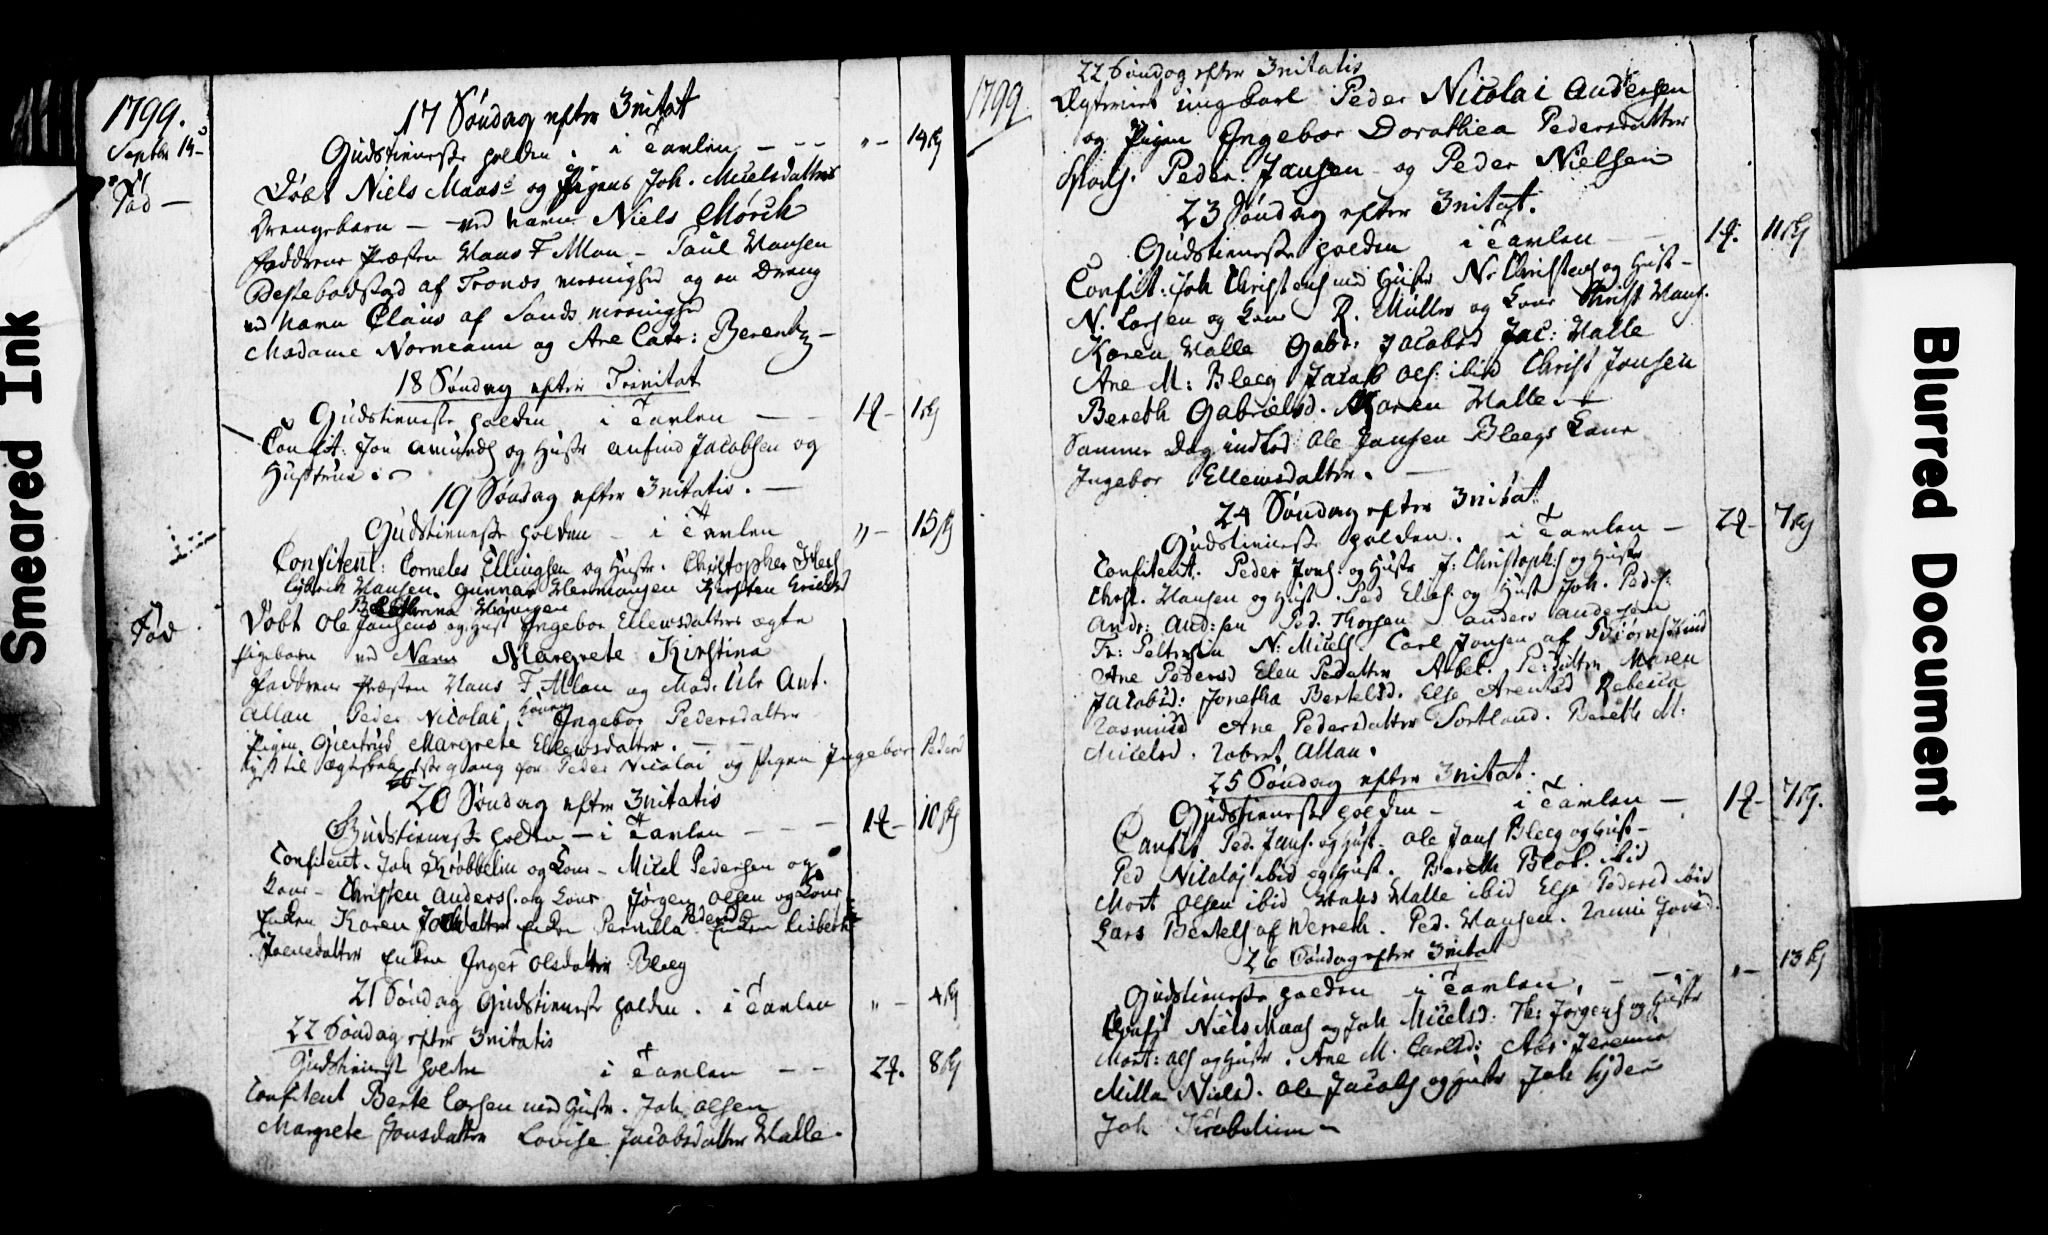 1799.
Septbr 15
17 Søndag efter 3nitat
Gudstieneste holden. i Tavlen - - - „ - 14 ß
Fød -
Døbt Niels Maas og Pigens Joh. Micelsdatters
Drengebarn - ved navn Niels Mørch
Faddrene Præsten Hans F Allan - Paul Hansen
af Tronds og en Dreng
ved navn Claus af Sands
Madame Normann og Ane Catr: Berentz -
18 Søndag efter Trinitat
Gudstieneste holden i Tavlen - - 1 - 1 ß
Confit: Jon Amunds og Hustr Anfind Jacobsen og
Hustrue
19 Søndag efter 3nitatis. -
Gudstieneste holden - i Tavlen „ - 15 ß
Confitent: Corneles Ellingsen og Hustr. Christopher
Hansen. Gunnar Hermansen Kirsten
Fød
Døbt Ole Jansens og Hust Ingebor Ellewsdatters ægte
Pigebarn ved Navn Margrete Kirstina
Faddrene Præsten Hans F. Allan og Mad: Ulr Ant.
Allan Peder Nicolai, Ingebor Pedersdatter
Pigen. Giertrud Margrete Ellewsdatter. -
lyst til Ægteskab 1ste gang for Peder Nicolai og Pigen Ingebor Pedersd
20 Søndag efter 3nitatis
Gudstieneste holden - i Tavlen - - - 1 - 10 ß
Confitent. Joh Krøbbelin og Kone - Micel Pedersen og
Kone - Christen Anderss. og Kone Jørgen Olsen og Kone
Enken Karen Enken Pernilla Pedersd Enken Lisbeth
Enken Inger Olsdatter Bleeg
21 Søndag Gudstieneste holden. i Tavlen „ - 4 ß
22 Søndag efter 3nitatis
Gudstienest holden i Tavlen - - 2 . 8 ß
Confitent Bente Larsen med Hustr. Joh Olsen
Margrete Jonsdatter Lovise Jacobsdatter Halle.
1799
22 Søndag efter 3nitatis
ungkarl Peder Nicolai Andersen
og Pigen Ingebor Dorothea Pedersdatter
Spons. Peder Jansen og Peder Nielsen
23 Søndag efter 3nitat.
Gudstieneste holden i Tavlen - - 1 . 11 ß
Confit: Joh Christens med Hustr N: Christens og Hust -
N. Larsen og Kone R. Müller og Kone Christ Hans.
Karen Halle Gabr. Jacobsd Jac: Halle
Ane M: Bleeg Jacob Ols: ibid Christ Jonsen
Bereth Gabrielsd. Maren Halle.
Samme Dag indled Ole Jansen Bleegs Kone
Ingebor Ellewsdatter. -
24 Søndag efter 3nitat
Gudstieneste holden. i Tavlen - 2 - 7 ß
Confitent. Peder Jons: og Hustr J: Christoph: og Hustr
Christ. Hansen og Hust. Ped Elias: og Hust Joh. Peders:
Andr: And:sen Ped. Thorsen Anders Andersen
Fr: Peltersen N: Micels. Carl Jonsen af
Ane Pedersd Elen Pedatter Abel. Pe:datter Maren
Jacobsd: Jonetha Bertelsd. Else Arentsd Rebecca
Rasmusd Ane Pedersdatter Sortland. Bereth M:
Micelsd. Robert Allan.
25 Søndag efter 3nitat.
Gudstieneste holden - i Tavlen - 1 - 7 ß.
Confit Ped. Jans. og Hust. Ole Jans Bleeg og Hust -
Ped Nicolaj ibid og Hust. Bereth ibid
Mort Olsen ibid Hans Halle ibid Else Pedersd ibid
Lars Bertels af Werreth. Ped. Hansen.
26 Søndag efter 3nitat
Gudstieneste holden i Tavlen. - - - „ - 13 ß
Confit Niels Maas og Joh Micelsd: Th: Jørgens og Hustr
Mort: Ols og Hustr. Ane M. Carlsd:
Milla Nielsd. Ole Jacobs og Hustr Joh
Joh Krøbelin -
Smeared Ink
Blurred Document